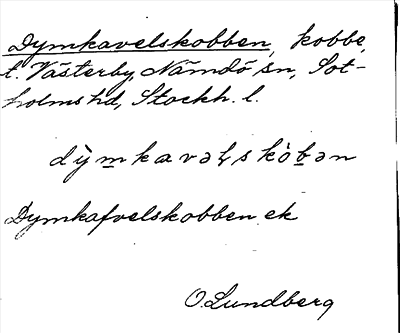 Dymkavelskobben, kobbe,
t. Västerby, Nämdö sn, Sot-
holms hd, Stockh. l.
dỳm̲kavəl̥skò̀b̲ən
Dymkafvelskobben ek
O. Lundberg